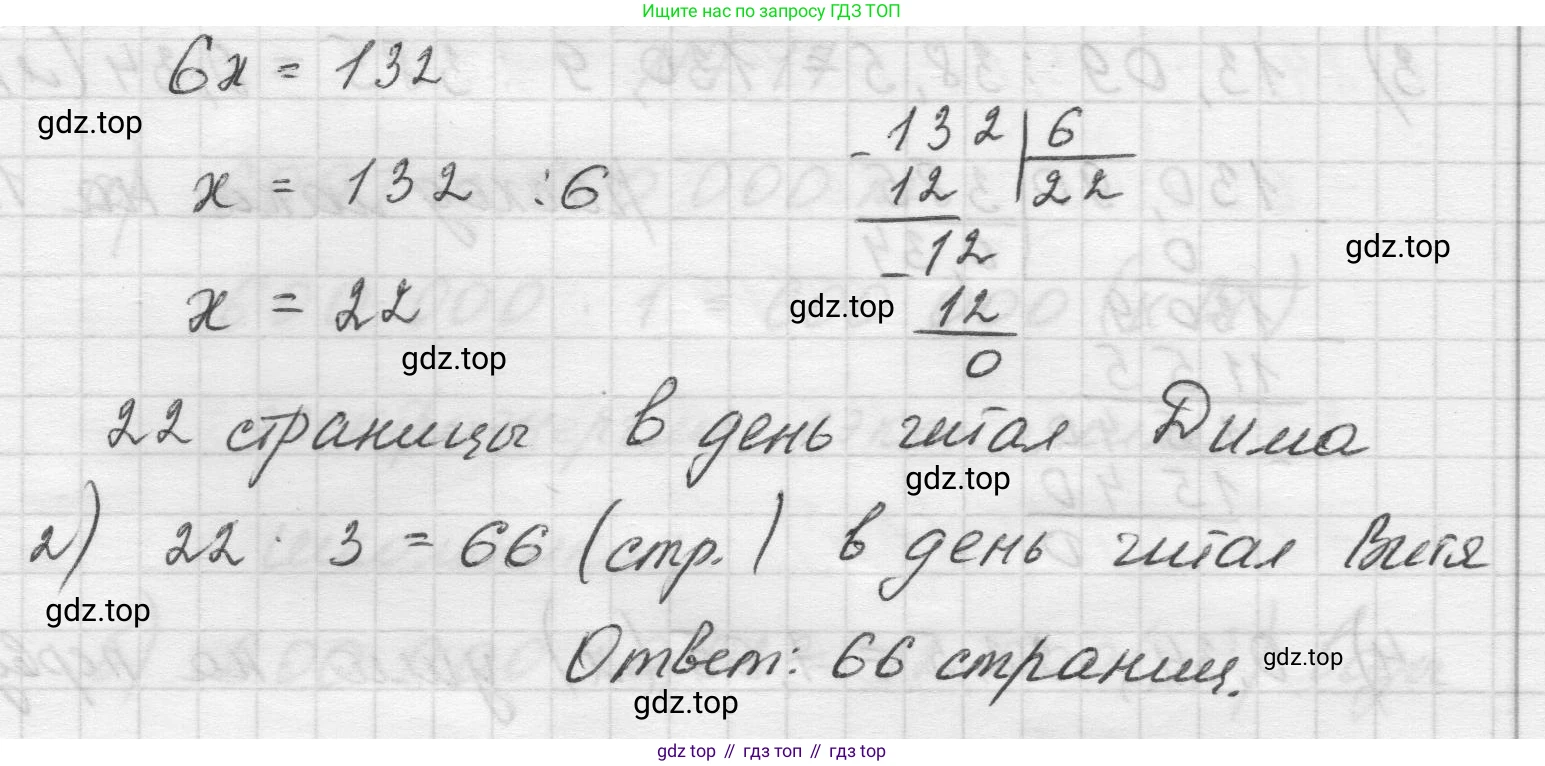 Ищите нас по запросу ГДЗ ТОП
6x = 132
gdz.top
x = 132 : 6
x = 22
- 132 | 6
12 | 22
- 12
12
0
gdz.top
gdz.top
gdz.top
22 страницы в день читал Дима
gdz.top
2) 22 · 3 = 66 (стр.) в день читал Витя
gdz.top
Ответ: 66 страниц.
gdz.top
gdz.top
gdz top // гдз топ // гдз top